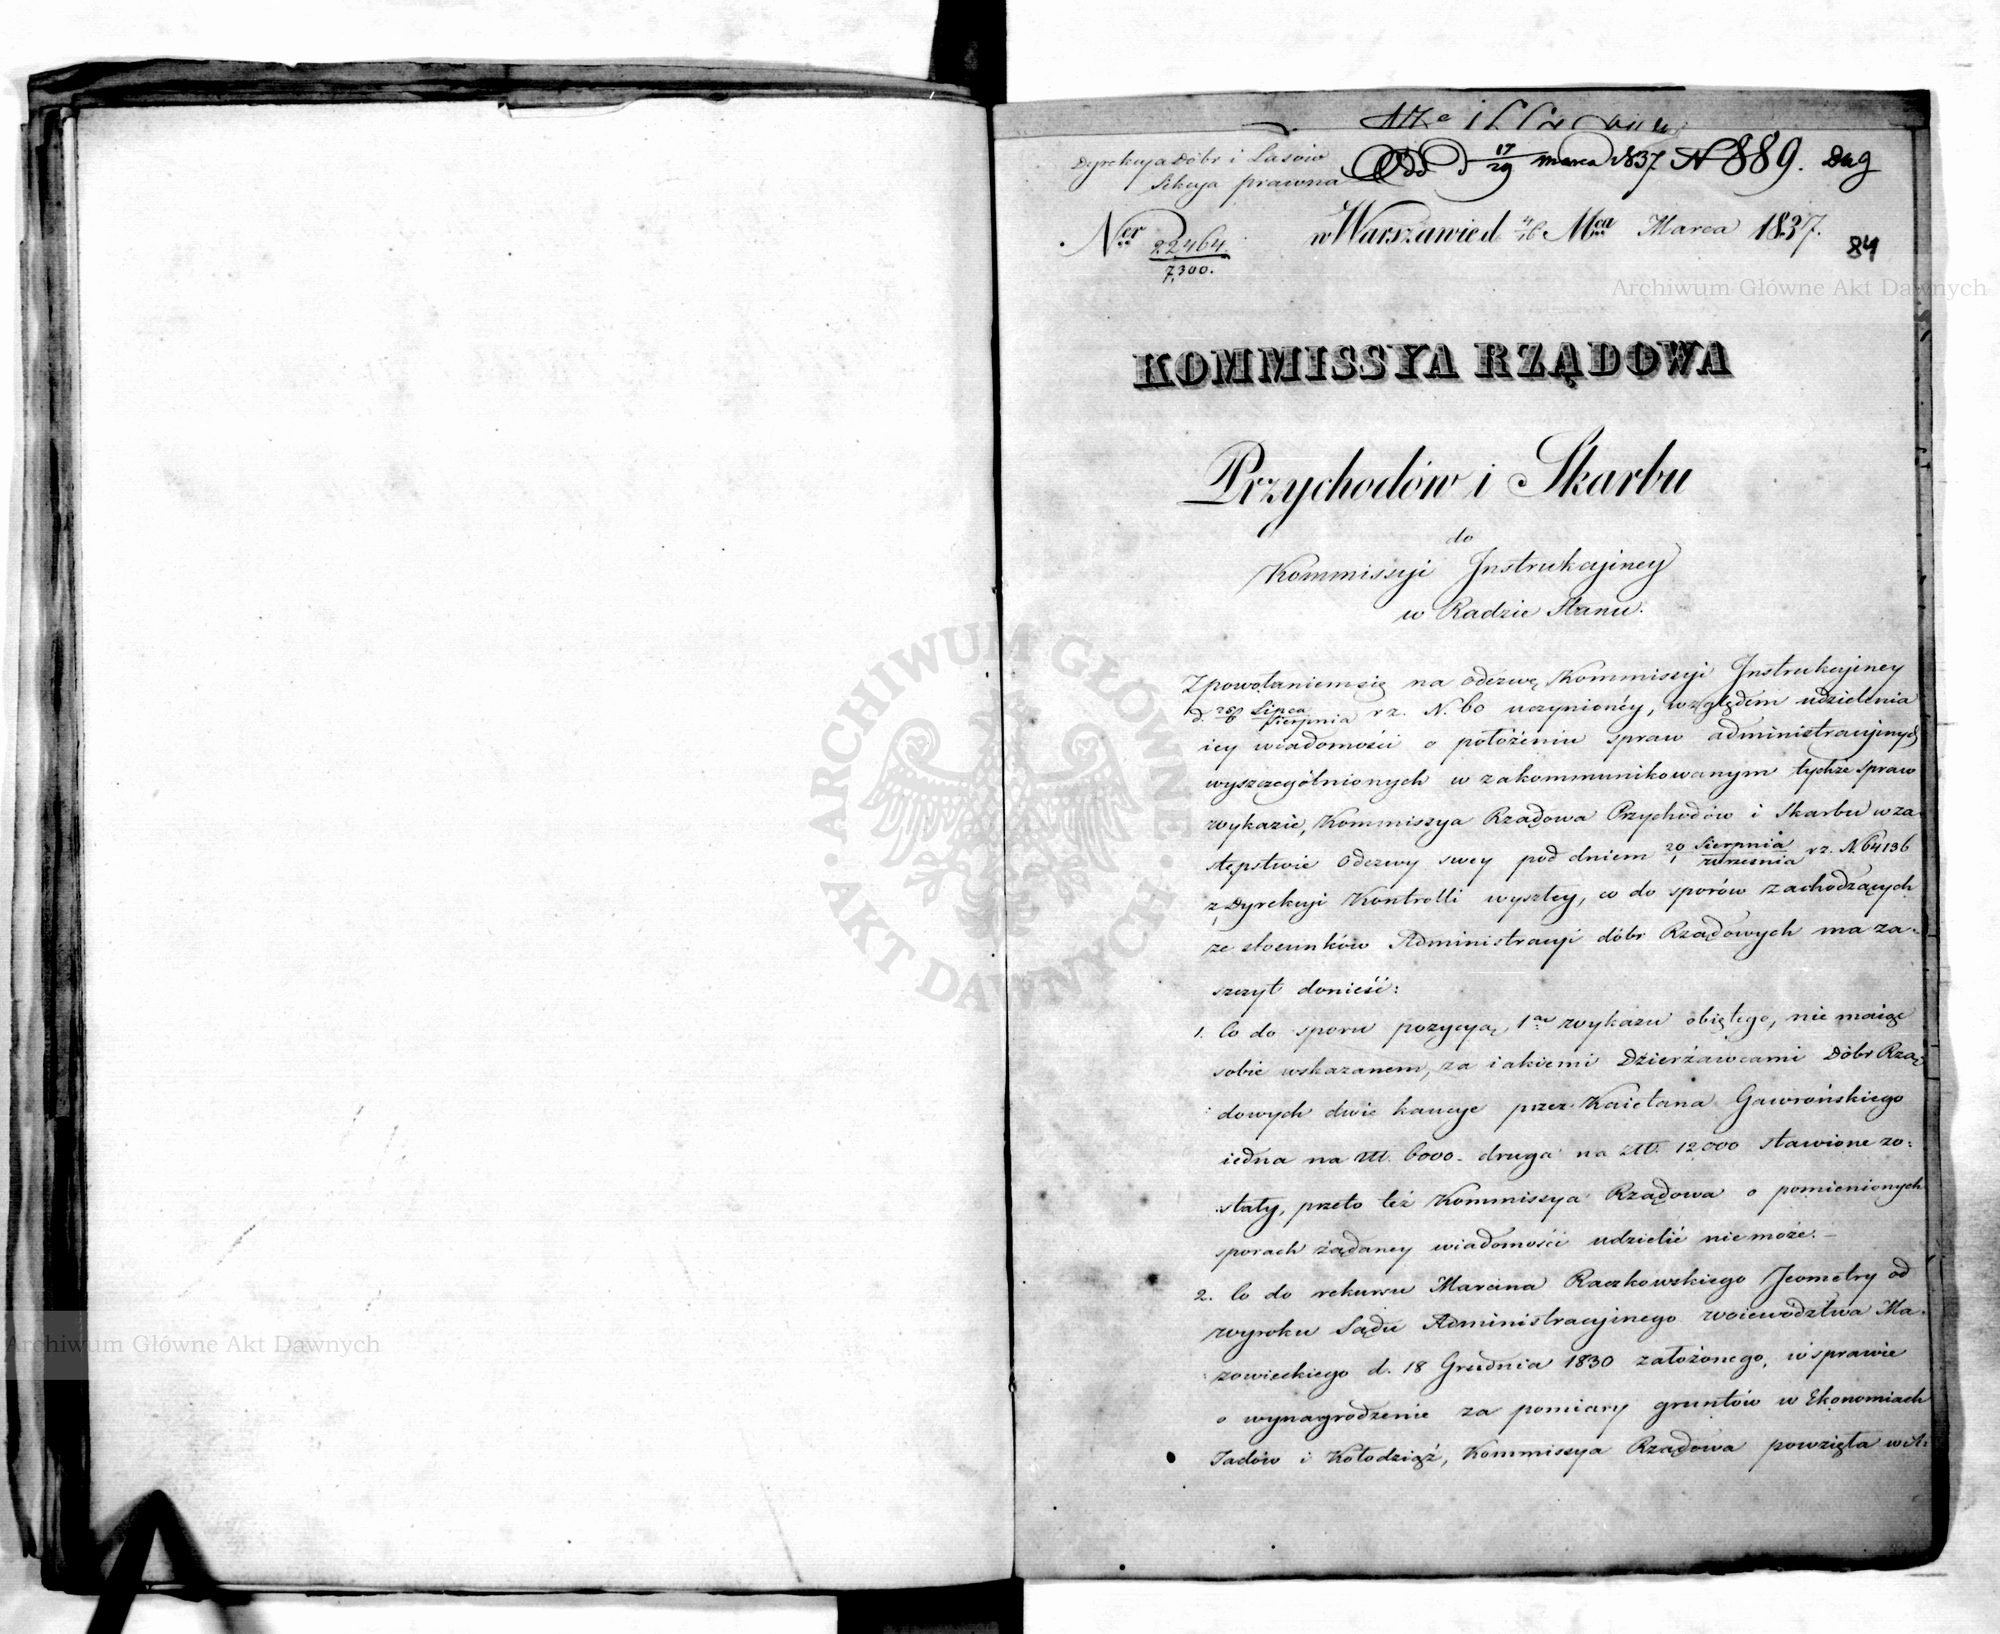 Dyrekcya Dóbr i Lasów
Sekcya prawna
Odd d 17/29 marca 1837 N 889. Dug
Ner 22,464/7,300.
w Warszawie d 4/16 Mca Marca 1837.
84
Archiwum Główne Akt Dawnych
KOMMISSYA RZĄDOWA
Przychodów i Skarbu
do
Kommissyi Instrukcyiney
w Radzie Stanu.
Z powołaniem się na odezwę Kommissyi Instrukcyiney
d. 25/6 Lipca/Sierpnia r z. N. 60 uczynioney, względem udzielenia
iey wiadomości o położeniu spraw administracyinych
wyszczególnionych w zakommunikowanym tychże spraw
wykazie, Kommissya Rządowa Przychodów i Skarbu w za-
stępstwie odezwy swey pod dniem 20/1 Sierpnia/września r z. N. 64136
z Dyrekcyi Kontrolli wyszłey, co do sporów zachodzących
ze stosunków Administracyi dóbr Rządowych ma za-
szczyt donieść:
1. Co do sporu pozycyą 1ą wykazu obiętego, nie maiąc
sobie wskazanem, za iakiemi Dzierżawcami Dóbr Rzą-
dowych dwie kaucye przez Kaietana Gawrońskiego
iedna na Złł. 6000 - druga na Złł. 12000 stawione zo-
stały, przeto też Kommissya Rządowa o pomienionych
sporach żądaney wiadomości udzielić nie może. -
2. Co do rekursu Marcina Raczkowskiego Jeometry od
wyroku Sądu Administracyinego woiewództwa Ma-
zowieckiego d. 18 Grudnia 1830 założonego, w sprawie
o wynagrodzenie za pomiary gruntów w Ekonomiach
Jadów i Kołodziąż, Kommissya Rządowa powzięła wia-
ARCHIWUM GŁÓWNE
AKT DAWNYCH
Archiwum Główne Akt Dawnych